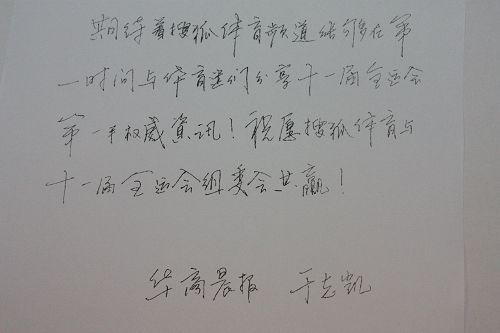 期待着搜狐体育频道能够在第
一时间与体育迷们分享十一届全运会
第一手权威資讯！祝愿搜狐体育与
十一届全运会组委会共赢！
华商晨报 于志凯